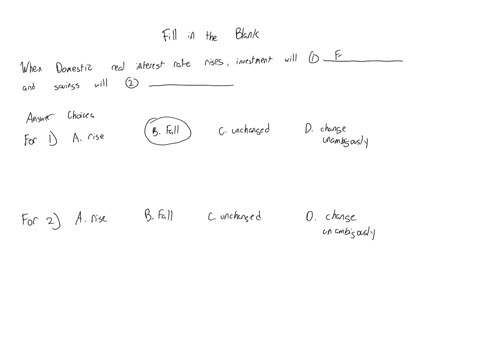 Fill in the Blank
When Domestic real interest rate rises, investment will ① F
and savings will ②
Answer Choices
For 1) A. rise B. Fall C. unchanged D. change unambigously
For 2) A. rise B. Fall C. unchanged D. change unambigously